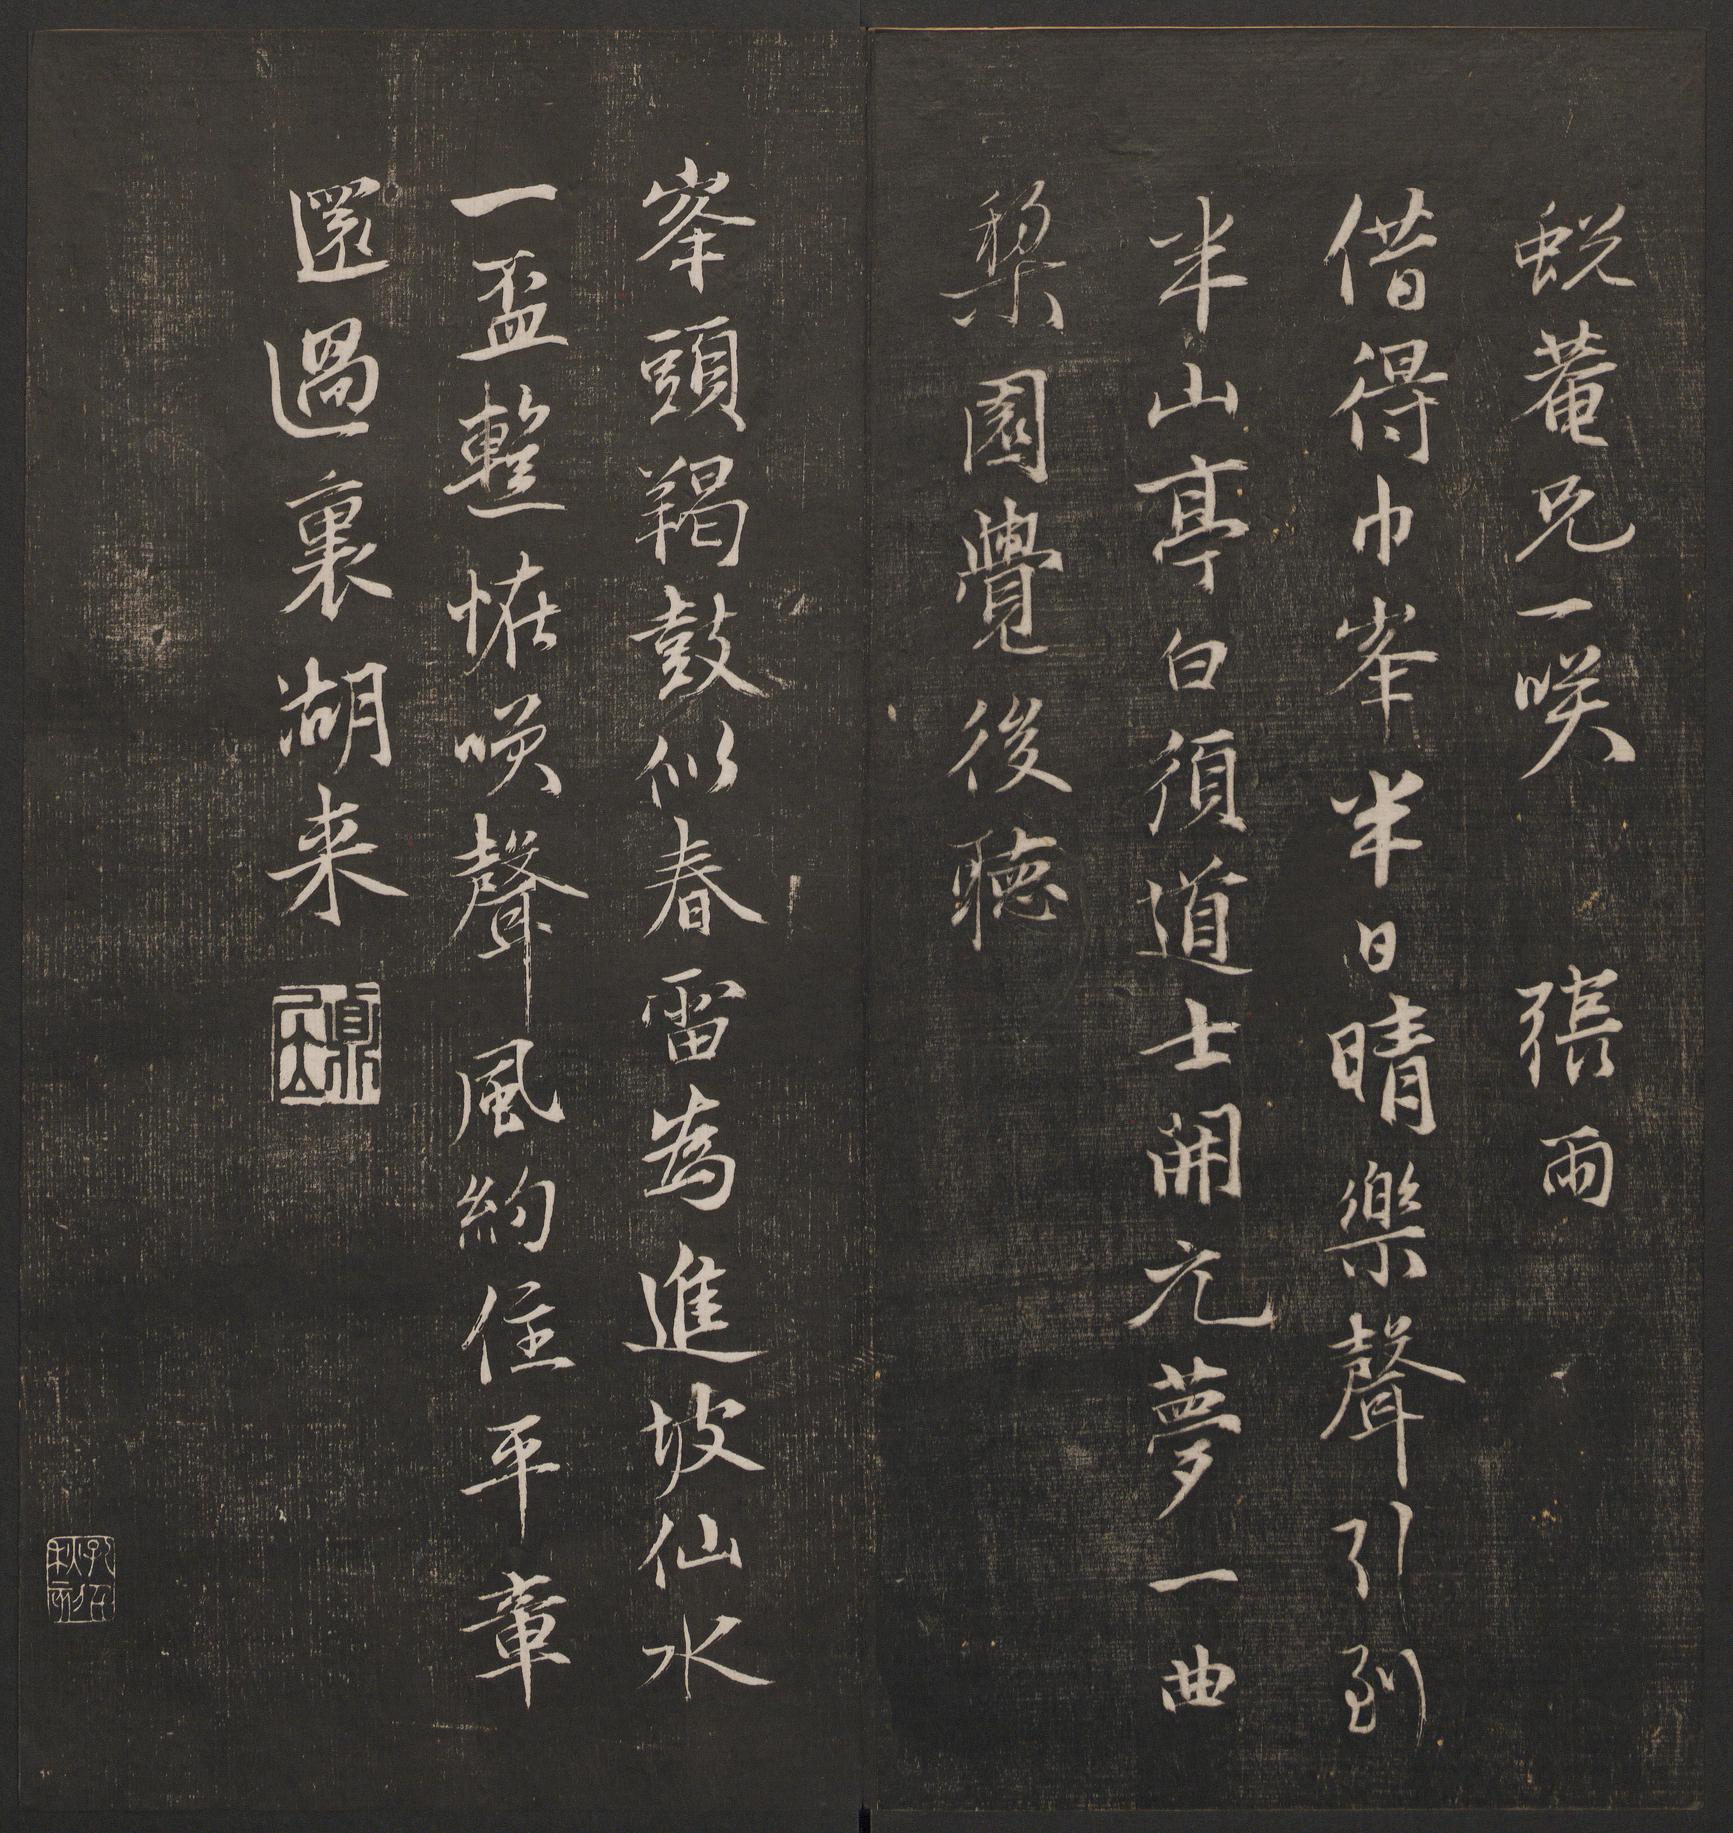 蛻菴兄一咲 張雨
借得巾峯半日晴樂聲引到
半山亭白須道士開元夢一曲
棃園覺後聽
峯頭羯鼓似春雷為進坡仙水
一盃整恠咲聲風約住平章
還過裏湖来